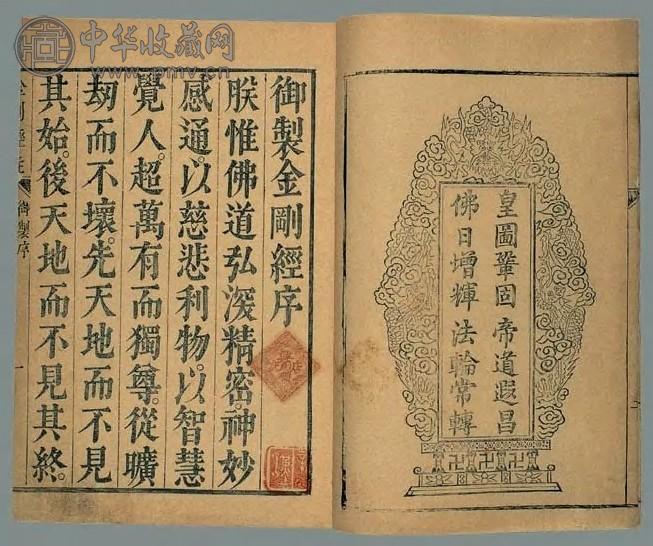 皇圖鞏固帝道遐昌
佛日增輝法輪常轉
御製金剛經序
朕惟佛道弘深精密神妙
感通。以慈悲利物。以智慧
覺人。超萬有而獨尊。從曠
劫而不壞。先天地而不見
其始。後天地而不見其終。
御製序
一
中华收藏网
www.pmv.cn